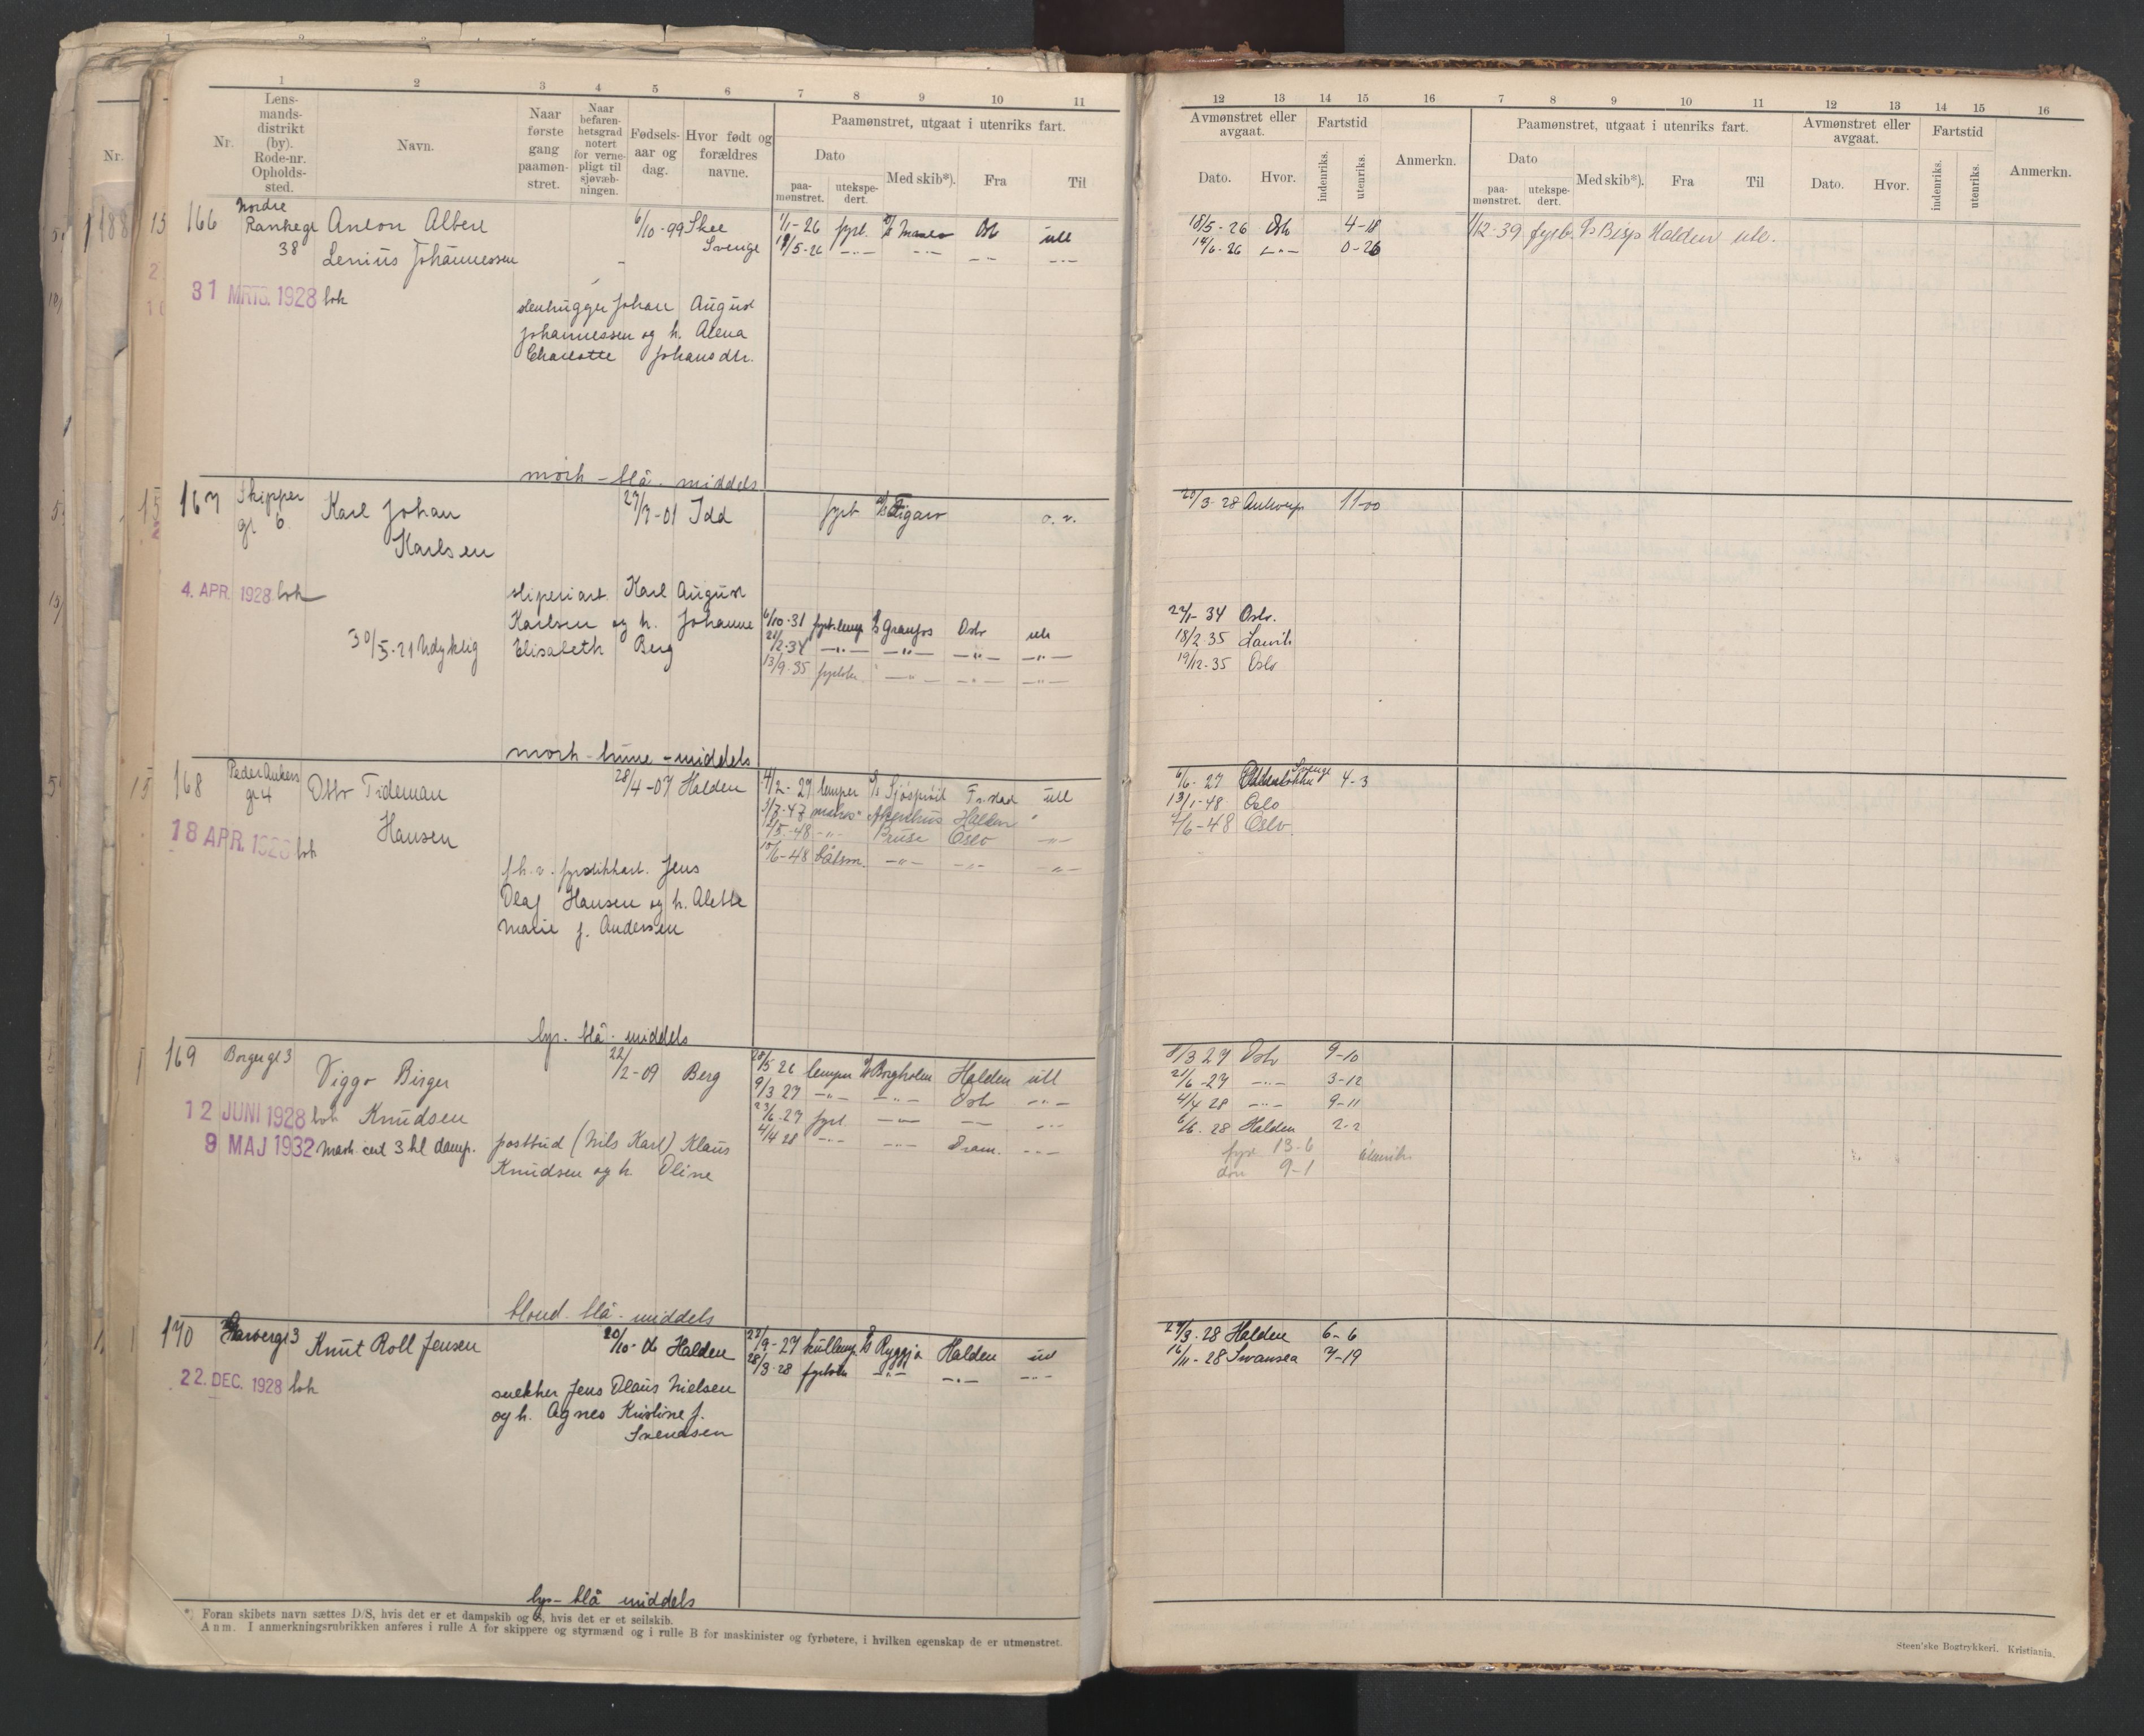 1 2 3 4 5 6 7 8 9 10 11
Nr.
Lens-
mands-
distrikt
(by).
Rode-nr.
Opholds-
sted.
Navn.
Naar
første
gang
paamøn-
stret.
Naar
befaren-
hetsgrad
notert
for verne-
pligt til
sjøvæb-
ningen.
Fødsels-
aar og
dag.
Hvor født og
forældres
navne.
Paamønstret, utgaat i utenriks fart.
Dato
paa-
mønstret.
utekspe-
dert.
Med skib*).
Fra
Til
12 13 14 15 16 7 8 9 10 11 12 13 14 15 16
Avmønstret eller
avgaat.
Dato.
Hvor.
Fartstid
indenriks.
utenriks.
Anmerkn.
Paamønstret, utgaat i utenriks fart.
Dato
paa-
mønstret.
utekspe-
dert.
Med skib*).
Fra
Til
Avmønstret eller
avgaat.
Dato.
Hvor.
Fartstid
indenriks.
utenriks.
Anmerkn.
Nr.
188
166 Nordre
Bankegt Anton Albert 6/10-99 Skee 1/1-26 fyrb. Osl. utl 18/5-26 Osl. 4-18 1/12-39 fyrb. D/s Bisp Halden utl.
38 Lenius Johannessen Svenge 19/5-26 —"— —"— —"— —"— 14/6-26 —"— 0-26
31 MRTS. 1928 bok stenhugger Johan August
Johannessen og h. Alena
Charlotte Johansdtr.
mörk - blå - middels
167 Skipper
gt 6 Karl Johan 27/7-01 Idd fyrb D/s Figaro o. v. 20/3-28 Antwerp 11-00
Karlsen
4. APR. 1928 bok sliperiarb. Karl August
Karlsen og h. Johanne 6/10-31 fyrb.lemp D/s Granfos Oslo utl 22/1-34 Oslo.
30/5-21 Udyktig Elisabeth Berg 21/2-34 —"— —"— —"— —"— 18/2 35 Larvik
13/9-35 fyrböter —"— —"— —"— 19/12-35 Oslo
mörk - brune - middels
168 Peder Ankers
gt 4 Otto Tideman 28/4-07 Halden 4/2-27 lemper D/s Sjöspröit Fr.stad utl 6/6-27 Svenge 4-3
Hansen 3/7-47 matros Akershus Halden " 13/1-48 Oslo
18 APR. 1928 bok 2/5-48 —"— Bruse Oslo —"— 7/6-48 Oslo.
10/6-48 båtsm. —"— —"— —"—
fh.v. fyrstikkarb. Jens
Olaf Hansen og h. Alette
Marie f. Andersen
lys - blå - middels
169 Borgergt 3 Viggo Birger 22/2-09 Berg 28/5 26 lemper D/s Borgholm Halden utl 8/3 27 Oslo 9-10
9/3 27 —"— —"— Oslo —"— 21/6-27 —"— 3-12
12 JUNI 1928 bok Knudsen 23/6-27 fyrb. —"— —"— —"— 4/4 28 —"— 9-11
9 MAJ 1932 Mask. cert 3 kl damp. postbud (Nils Karl) Klaus 4/4 28 —"— —"— Dram. —"— 6/6-28 Halden 2-2
Knudsen og h. Oline
fyrb 13-6
9-1
blond - blå - middels
170 Knut Roll Jensen 20/10-06 Halden 22/9-27 kullemp. D/s Ryggja Halden utl 27/3-28 Halden 6-6
22. DEC. 1928 bok 28/3-28 fyrböter —"— —"— —"— 16/11-28 Swansea 7-19
snekker Jens Olaus Nielsen
og h. Agnes Kristine f.
Svendsen
lys - blå middels
*) Foran skibets navn sættes D/S, hvis det er et dampskib og S, hvis det er et seilskib.
Anm. I anmerkningsrubrikken anføres i rulle A for skippere og styrmænd og i rulle B for maskinister og fyrbøtere, i hvilken egenskap de er utmønstret.
Steen'ske Bogtrykkeri. Kristiania.